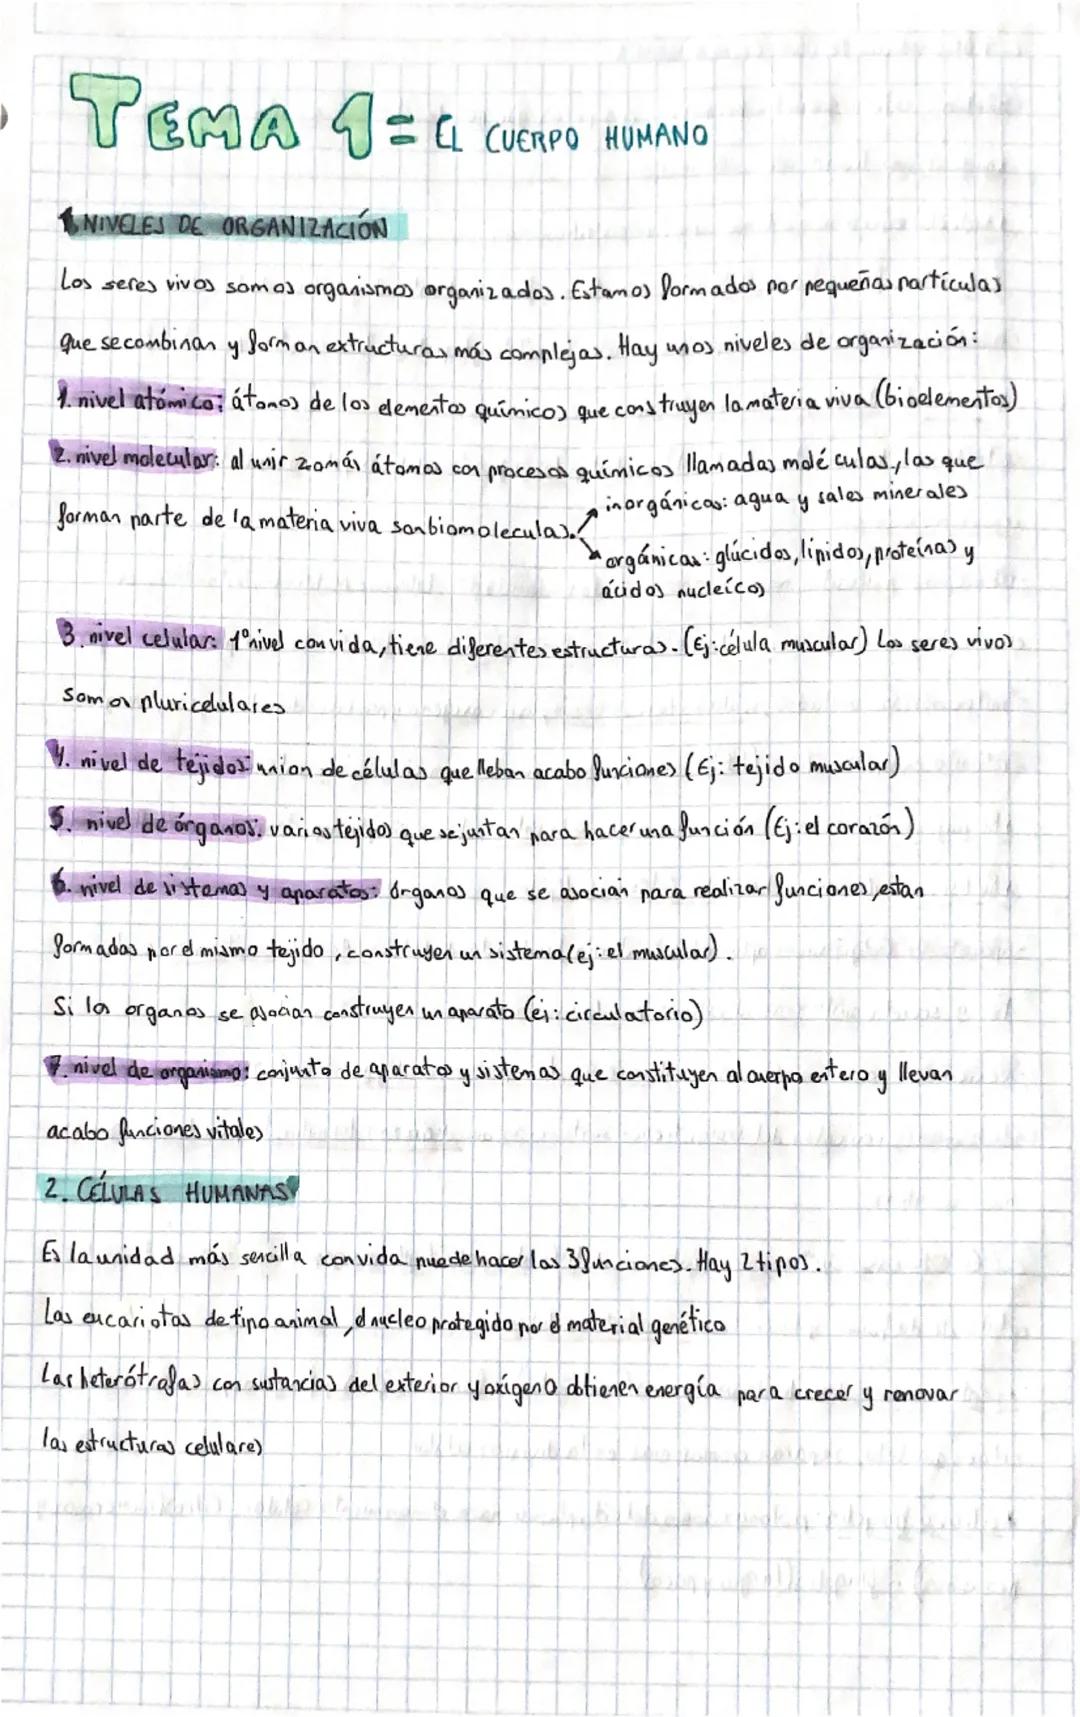 TEMA 1 = EL CUERPO HUMANO
1. NIVELES DE ORGANIZACIÓN
Los seres vivos somos organismos organizados. Estamos formados por pequeñas partículas
que se combinan y forman extructuras más complejas. Hay unos niveles de organización:
1. nivel atómico: átomos de los elementos químicos que construyen la materia viva (bioelementos)
2. nivel molecular: al unir 2 o más átomos con procesos químicos llamadas moléculas, las que
forman parte de la materia viva son biomoleculas.
inorgánicas: agua y sales minerales
orgánicas: glúcidos, lípidos, proteínas y
ácidos nucleícos
3. nivel celular: 1º nivel con vida, tiene diferentes estructuras. (Ej: célula muscular) Los seres vivos
somos pluricelulares
4. nivel de tejidos: union de células que lleban acabo funciones (Ej: tejido muscular)
5. nivel de órganos: varios tejidos que se juntan para hacer una función (Ej: el corazón)
6. nivel de sistemas y aparatos: órganos que se asocian para realizar funciones, estan
formadas por el mismo tejido, construyen un sistema (ej: el muscular).
Si los organos se asocian construyen un aparato (ej: circulatorio)
7. nivel de organismo: conjunto de aparatos y sistemas que constituyen al cuerpo entero y llevan
acabo funciones vitales
2. CÉLULAS HUMANAS
Es la unidad más sencilla con vida puede hacer las 3 funciones. Hay 2 tipos.
Las eucariotas de tipo animal, el nucleo protegido por el material genético
Las heterótrofas con sustancias del exterior y oxígeno obtienen energía para crecer y renovar
las estructuras celulares